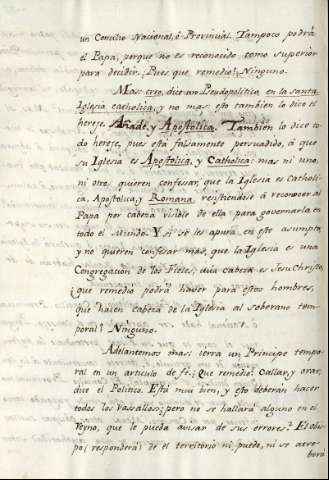 un Concilio Nacional, ó Provincial. Tampoco podrá
el Papa, porque no es reconocido como superior
para decidir. ¿Pues que remedio? Ninguno.
Mas: creo, dice un Pseudopolitico, en la santa
Iglesia catholica, y no mas: esto tambien lo dice el
herege. Añade, y Apostólica. Tambien lo dice to
do herege, pues está falsamente persuadido, á que
su Iglesia es Apostólica, y Catholica: mas ni uno,
ni otro quieren confesar, que la Iglesia es Catholi-
ca, Apostolica, y Romana, resistiendose á reconocer al
Papa por cabeza visible de ella para governarla en
todo el Mundo. Y si se les apura en este asumpto,
y no quieren confesar mas, que la Iglesia es una
Congregacion de los Fieles, cuia cabeza es Jesu Christo,
¿que remedio podrá haver para estos hombres,
que hacen cabeza de la Iglesia al soberano tem
poral? Ninguno.
Adelantemos mas: yerra un Principe tempo-
ral en un articulo de fé: ¿Que remedio? Callar, y orar,
dice el Politico. Está mui bien, y esto deberan hacer
todos los vasallos; pero no se hallará alguno en el
Reyno, que le pueda avisar de sus errores? El obis-
po (responderá) de el territorio ni puede, ni se atre-
berá